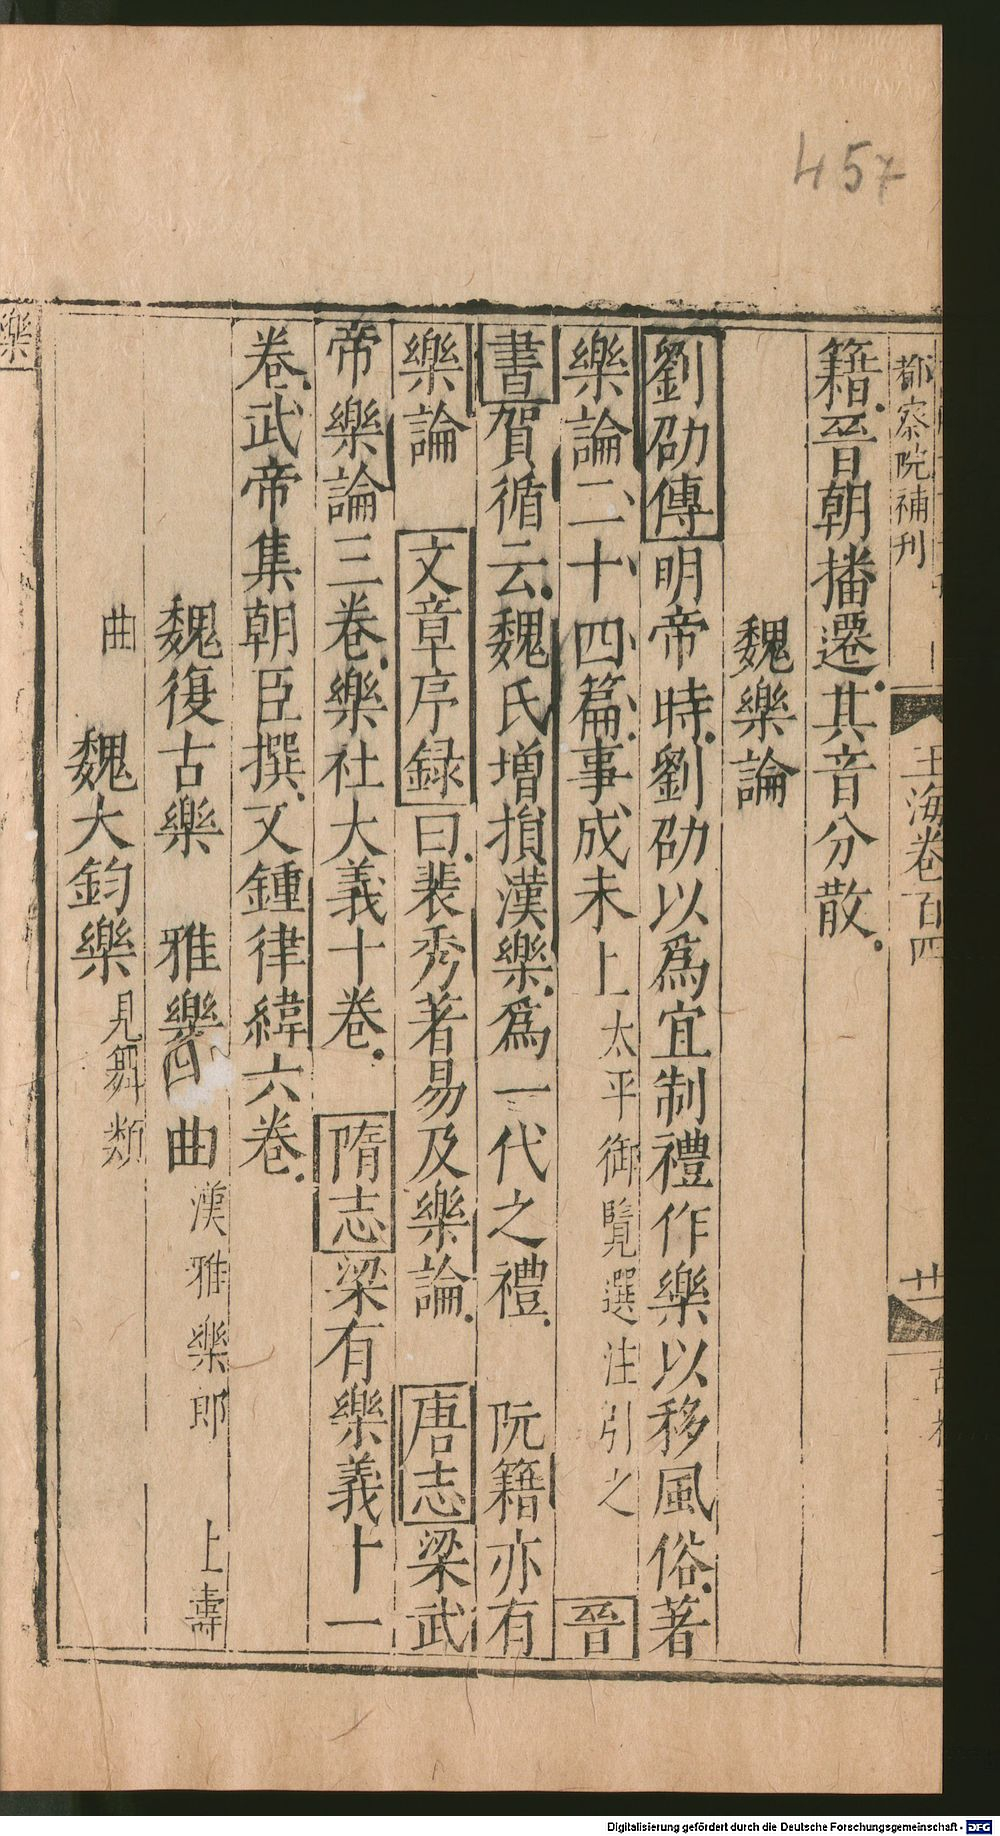 457
都察院補刊
玉海卷百四
廿
籍晉朝播遷其音分散
魏樂論
劉劭傳明帝時劉劭以爲宜制禮作樂以移風俗著
樂論二十四篇事成未上太平御覽選注引之 晉
書賀循云魏氏增損漢樂爲一代之禮 阮籍亦有
樂論 文章序録曰裴秀著易及樂論 唐志梁武
帝樂論三卷樂社大義十卷 隋志梁有樂義十一
卷武帝集朝臣撰又鍾律緯六卷
魏復古樂 雅樂四曲 漢雅樂郎 上壽
曲 魏大鈞樂見舞類
樂
Digitalisierung gefördert durch die Deutsche Forschungsgemeinschaft - DFG